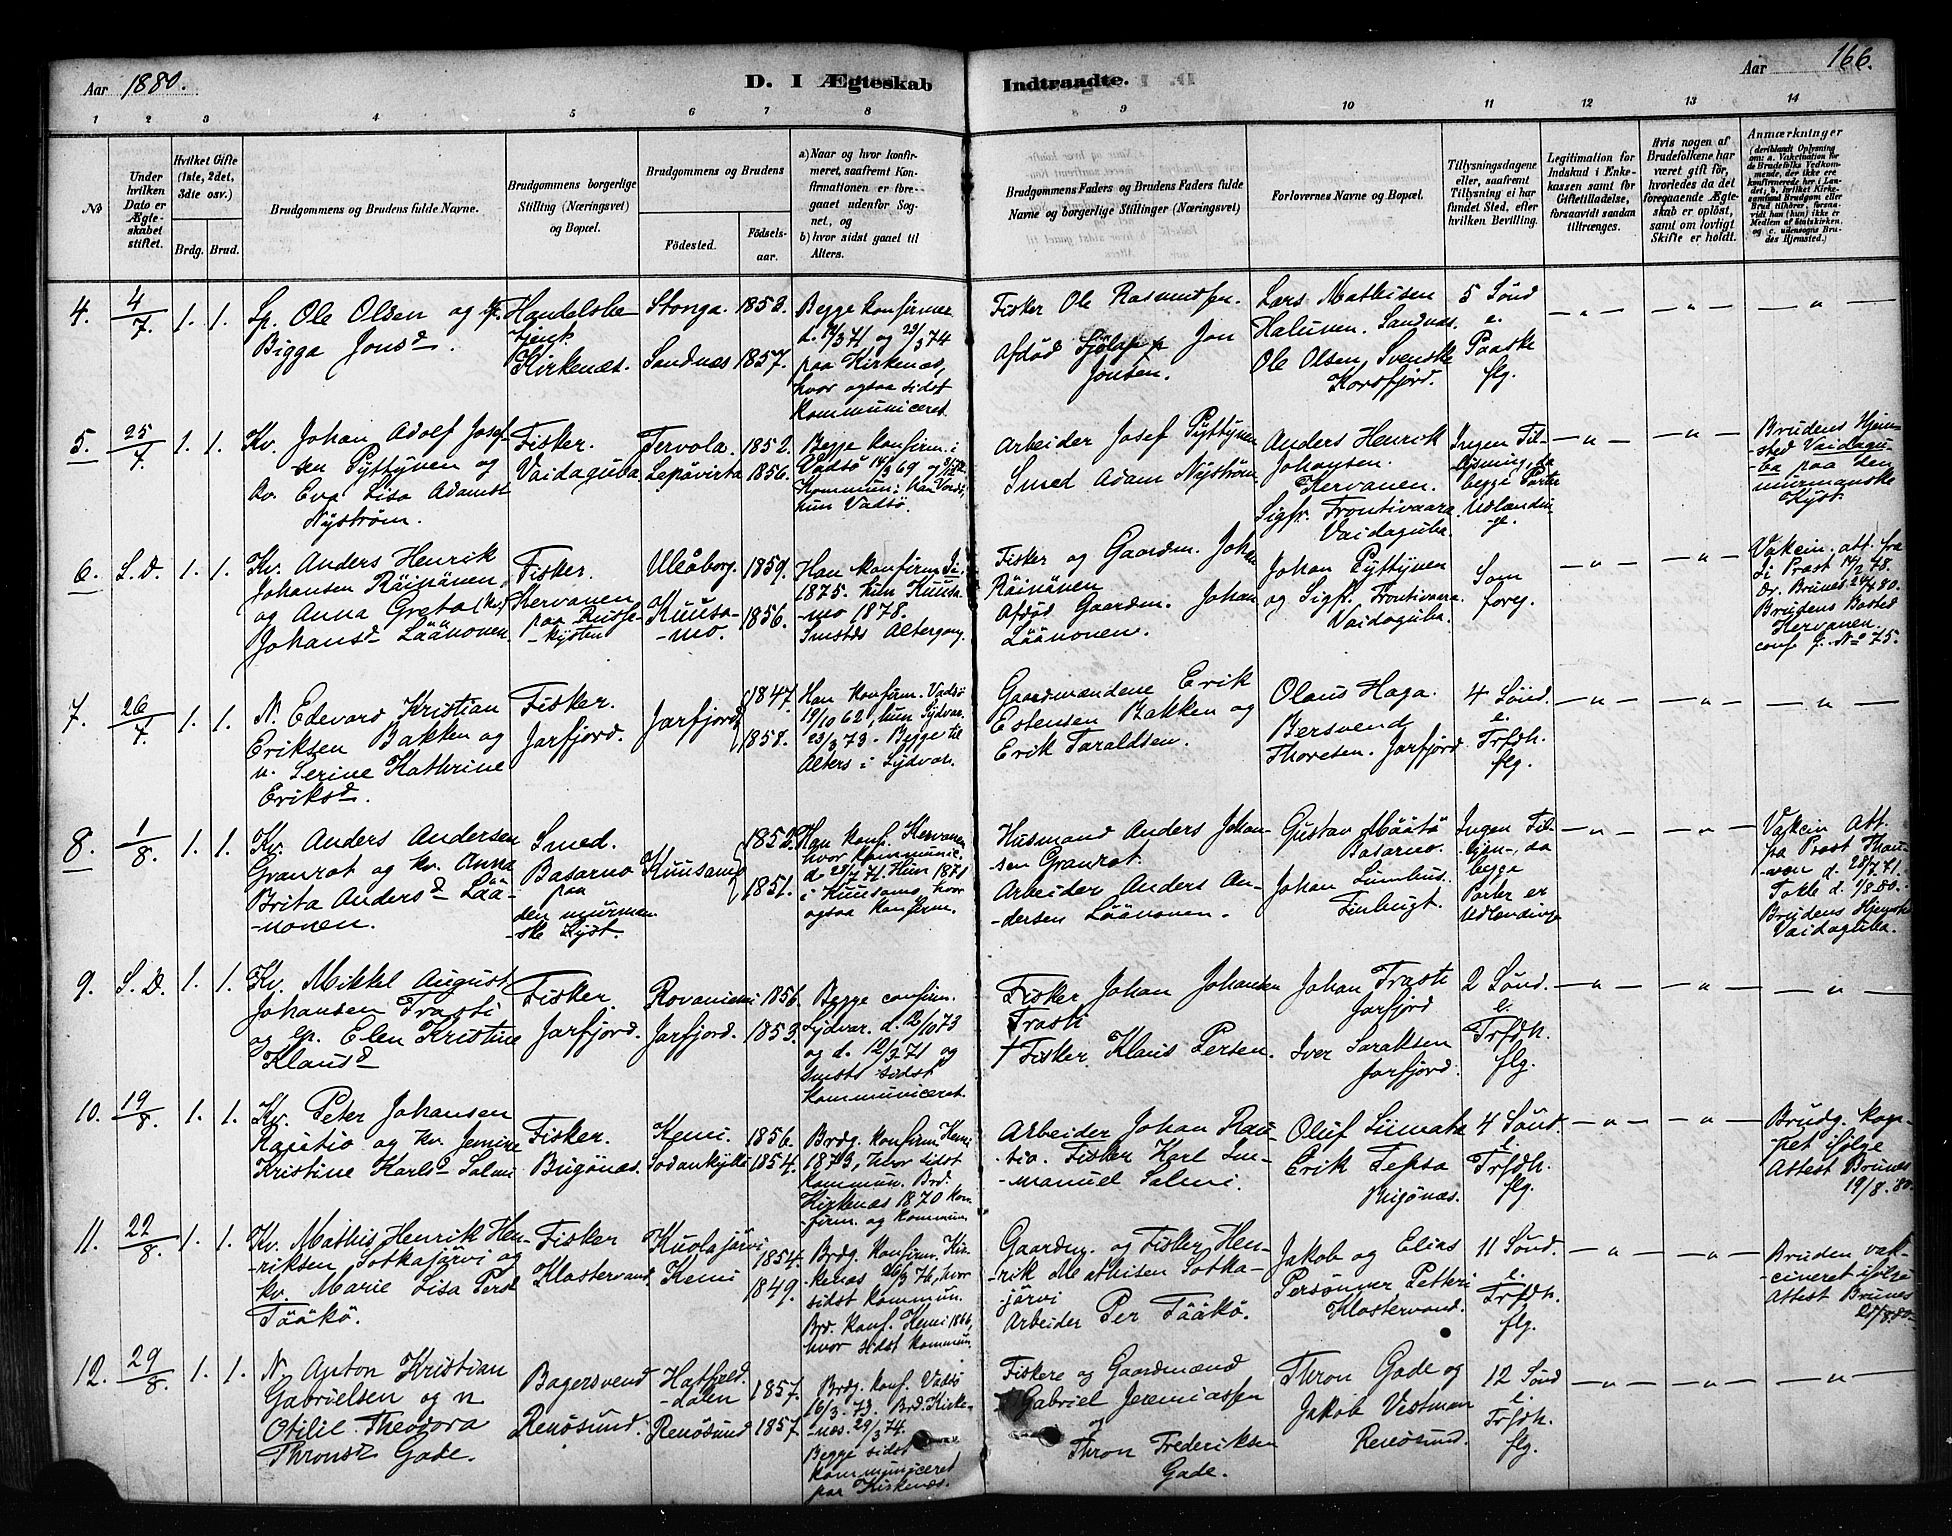 Aar 1880.
D. I Ægteskab Indtraadte.
Aar 166.
1 2 3 4 5 6 7 8 9 10 11 12 13 14
No
Under hvilken Dato er Ægteskabet stiftet.
Hvilket Gifte (1ste, 2det, 3die osv.)
Brdg. Brud.
Brudgommens og Brudens fulde Navne.
Brudgommens borgerlige Stilling (Næringsvei) og Bopæl.
Brudgommens og Brudens
Fødested.
Fødselsaar.
a) Naar og hvor konfirmeret, saafremt Konfirmationen er foregaaet udenfor Sognet, og
b) hvor sidst gaaet til Alters.
Brudgommens Faders og Brudens Faders fulde Navne og borgerlige Stillinger (Næringsvei)
Forlovernes Navne og Bopæl.
Tillysningsdagene eller, saafremt Tillysning ei har fundet Sted, efter hvilken Bevilling.
Legitimation for Indskud i Enkekassen samt for Giftetilladelse, forsaavidt saadan tiltrænges.
Hvis nogen af Brudefolkene har været gift før, hvorledes da det foregaaende Ægteskab er opløst, samt om lovligt Skifte er holdt.
Anmærkninger
(deriblandt Oplysning om: a. Vakcination for de Brudefolks Vedkommende, der ikke ere konfirmerede her i Landet; b. hvilket Kirkesamfund Brudgom eller Brud tilhører, forsaavidt han (hun) ikke er Medlem af Statskirken, og c. udensogns Brudes Hjemsted.)
4. 4/7 1. 1.
Sp. Ole Olsen og
Bigga Jonsd.
Handelsbe
tjent
Kirkenæs.
Stonga. 1853.
Sandnæs 1857.
Begge konfirmer
paa Kirkenæs,
hvor ogsaa sidst
kommuniceret.
Fisker Ole Rasmussen.
Afdød Jon
Jonsen.
Lars Mathisen
Halunen. Sandnæs.
Ole Olsen, Svenske
Korsfjord.
5 Sønd
e.
Paaske
flg.
— „ — — „ — — „ —
5. 25/7 1. 1.
Kv. Johan Adolf Josef-
sen Pyttynen og
Kv. Eva Lisa Adamsd
Nystrøm.
Fisker.
Vaidaguba
Tervola. 1852.
Lepävirta 1856.
Begge konfirm. i
Vadsø 14/3 69 og
Kommun: han Vardø,
hun Vadsø.
Arbeider Josef Pyttynen
Smed Adam Nystrøm
Anders Henrik
Johansen.
Kervanen.
Sigfr. Frontivaara.
Vaidaguba
Ingen Til-
lysning, da
begge Parter
Udlændin-
ge.
— „ — — „ —
Brudens Hjem-
sted Vaidagu-
ba paa den
murmanske
Kyst.
6. S.D. 1. 1.
Kv. Anders Henrik
Johansen Räinänen,
og Anna Greta (kv.)
Johansd Läänonen.
Fisker.
Kervanen
paa Russe-
-kysten
Uleåborg. 1859.
Kuusa-
mo. 1856.
Han konfirm. Ii
1875. hun Kuusa-
mo 1878.
Smstds Altergang.
Fisker og Gaardm. Johan
Räinänen
Afdød Gaardm. Johan
Läänonen.
Johan Pyttynen
og Sigfr. Frontivaara
Vaidaguba.
Som
foreg.
— „ — — „ —
Vakcin. att. fra
Ii Præst 14/2 78.
Dr. Brunes 24/7 80.
Brudens Bosted
Kervanen.
conf. J. No 75.
7. 26/7 1. 1.
N. Edevard Kristian
Eriksen Bakken og
n. Serine Kathrine
Eriksd.
Fisker.
Jarfjord.
Jarfjord
1847.
1858.
Han konfirm. Vadsø
19/10 62, hun Sydvar.
23/3 73. Begge til
Alters i Sydvar.
Gaardmændene Erik
Estensen Bakken og
Erik Taraldsen.
Olaus Haga.
Bersvend
Thoresen. Jarfjord
4 Sønd.
e.
Trfdh.
flg.
— „ — — „ — — „ —
8. 1/8 1. 1.
Kv. Anders Andersen
Granrot og kv. Anna
Brita Andersd Lää-
-nonen.
Smed.
Basarno
paa
den murman
-ske Kyst.
Kuusamo
1852.
1851.
Han konf. Kervanen
hvor kommunic.
Hun 1871
i Kuusamo, hvor
ogsaa konfirm.
Husmand Anders Johan-
sen Granrot.
Arbeider Anders An-
-dersen Läänonen.
Gustav Määtä
Basarno.
Johan Lumhus.
Finbugt.
Ingen Til-
lysn., da
begge
Parter er
Udlændinge
— „ — — „ —
Vakcin Att.
fra Præst
Tolle d. 1/8.80.
Brudens Hjemst.
Vaidaguba.
9. S.D. 1. 1.
Kv. Mikkel August
Johansen Trasti
og sp. Elen Kristine
Klausd
Fisker.
Jarfjord.
Rovaniemi 1856.
Jarfjord. 1853.
Begge confirm.
Sydvar. d. 12/10 73
og d. 12/3 71 og
Smsts sidst
kommuniceret.
Fisker Johan Johansen
Trasti
† Fisker Klaus Persen.
Johan Trasti
Jarfjord
Iver Saraksen
Jarfjord.
2 Sønd.
e.
Trfdh.
flg.
— „ — — „ — — „ —
10. 19/8 1. 1.
Kv. Peter Johansen
Rautio og kv. Jemine
Kristine Karlsd Salmi
Fisker.
Bugønæs.
Kemi. 1856.
Sodankylä 1854.
Brdg. konfirm. Kemi
1873, hvor sidst
kommun. Brd.
Kirkenæs 1870 kon-
-firm. og kommun.
Arbeider Johan Rau-
tio. Fisker Karl Im-
-manuel Salmi.
Oluf Siimata
Erik Tepsa
Bugønæs.
4 Sønd.
e.
Trfdh.
flg.
— „ — — „ —
Brudg. kop-
pet ifølge
Attest Brunes
19/8. 80.
11. 22/8 1. 1.
Kv. Mathis Henrik Hen-
-riksen Sotkajärvi og
kv. Marie Lisa Persd
Tääkö.
Fisker
Klostervand.
Kuolajärvi 1854.
Kemi 1849.
Brdg. konfirm. Kir-
-kenæs 26/3 76, hvor
sidst kommun.
Brd. konf. Kemi 1866,
hvor sidst kommun.
Gaardm. og Fisker Hen-
-rik Mathisen Sotka-
järvi
Arbeider Per Tääkö.
Jakob og Elias
Persønner Petteri
Klostervand.
11 Sønd.
e.
Trfdh.
flg.
— „ — — „ —
Bruden vak-
-cineret ifølge
Attest Brunes
21/8 80.
12. 29/8 1. 1.
N. Anton Kristian
Gabrielsen og n
Otilie Theodora
Thronsd Gade.
Bagersvend
Renøsund.
Hatfjeld-
-dalen 1857.
Renøsund 1857.
Brdg. konf. Vadsø
16/3. 73. Brd. Kirke-
næs. 29/3 74.
Begge sidst
kommuniceret
paa Kirkenæs.
Fiskere og Gaardmænd
Gabriel Jeremiassen
og
Thron Frederiksen
Gade.
Thron Gade og
Jakob Vestman
Renøsund.
12 Sønd
e.
Trfdh.
flg.
— „ — — „ — — „ —